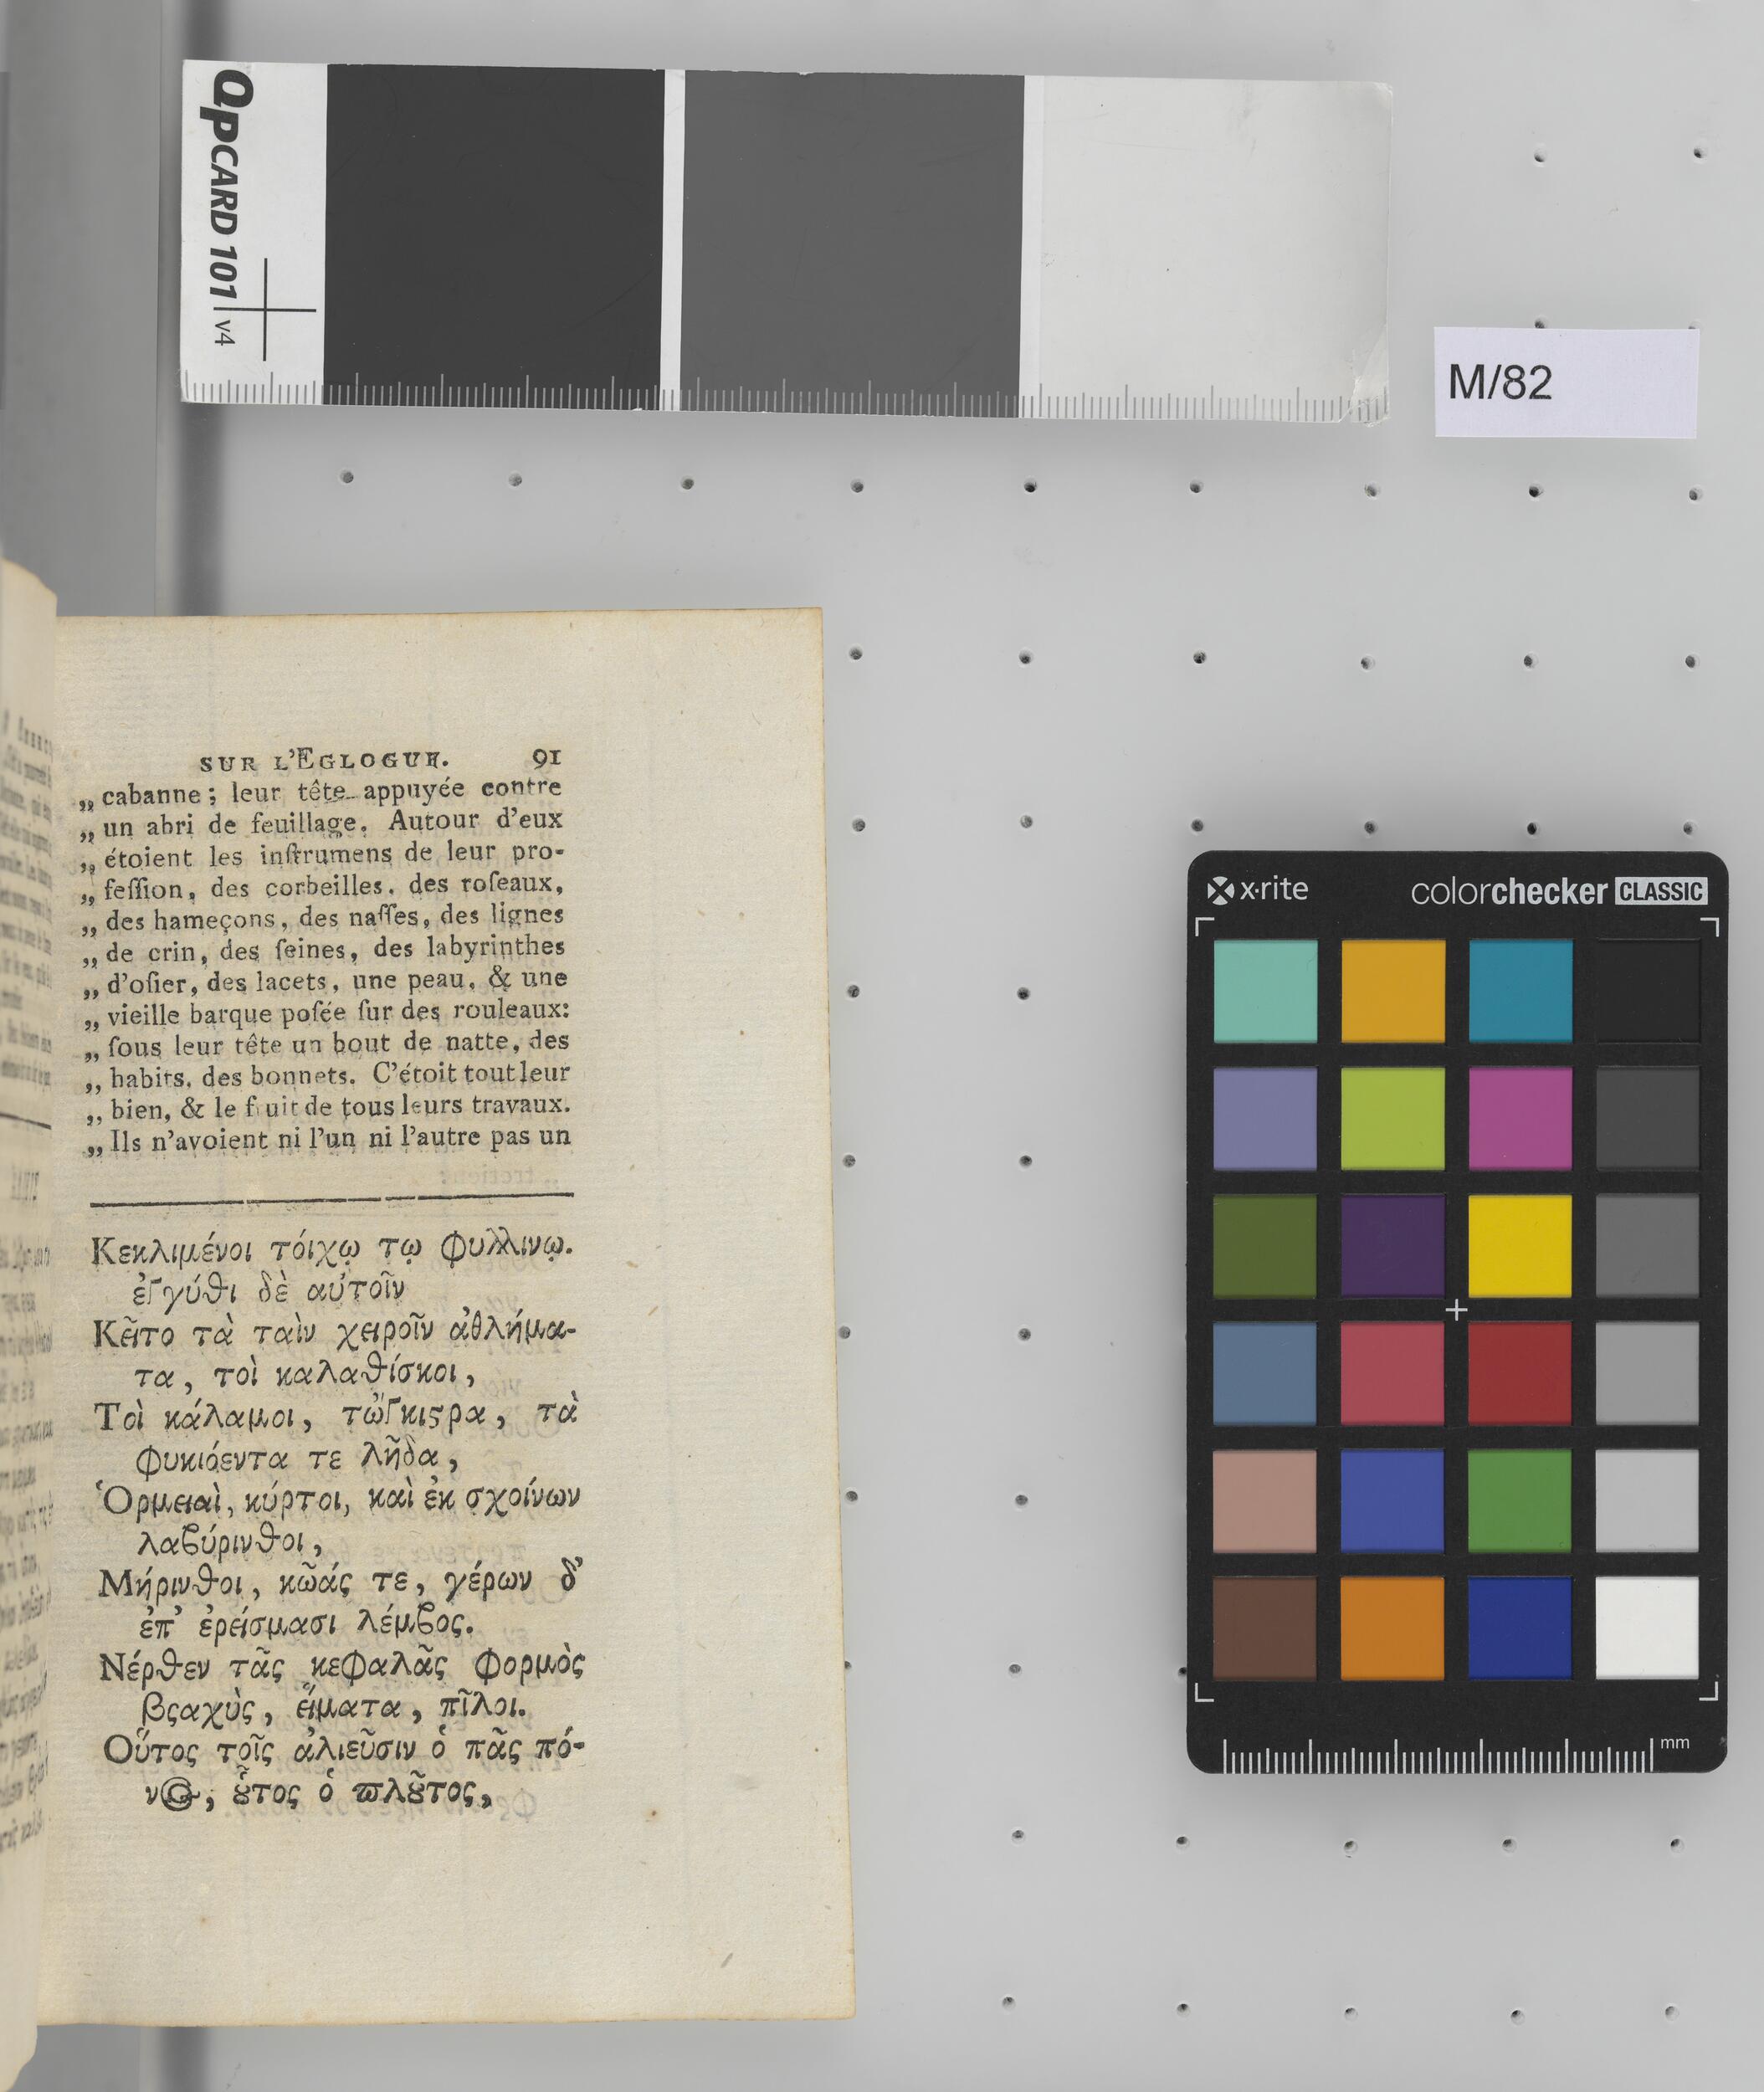 QpCARD 101 v4
M/82
SUR L'EGLOGUE. 91
„ cabanne ; leur tête appuyée contre
„ un abri de feuillage. Autour d'eux
„ étoient les inſtrumens de leur pro-
„ feſſion, des corbeilles, des roſeaux,
„ des hameçons, des naſſes, des lignes
„ de crin, des ſeines, des labyrinthes
„ d'oſier, des lacets, une peau, & une
„ vieille barque poſée ſur des rouleaux:
„ ſous leur tête un bout de natte, des
„ habits, des bonnets. C'étoit tout leur
„ bien, & le fruit de tous leurs travaux.
„ Ils n'avoient ni l'un ni l'autre pas un
Κεκλιμένοι τόιχῳ τῳ φυλλινῳ.
ἐγγύθι δὲ αὐτοῖν
Κεῖτο τὰ ταὶν χειροῖν ἀθλήμα-
τα, τοὶ καλαθίσκοι,
Τοὶ κάλαμοι, τὤγκιϛρα, τὰ
φυκιόεντα τε λῆδα,
Ὁρμειαὶ, κύρτοι, καὶ ἐκ σχοίνων
λαϐύρινθοι,
Μήρινθοι, κῶάς τε, γέρων δ'
ἐπ' ἐρείσμασι λέμϐος.
Νέρθεν τᾶς κεφαλᾶς φορμὸς
βςαχὺς, εἵματα, πῖλοι.
Οὕτος τοῖς ἁλιεῦσιν ὁ πᾶς πό-
νος, ȣ̃τος ὁ ϖλȣ̃τος,
x·rite colorchecker CLASSIC
mm